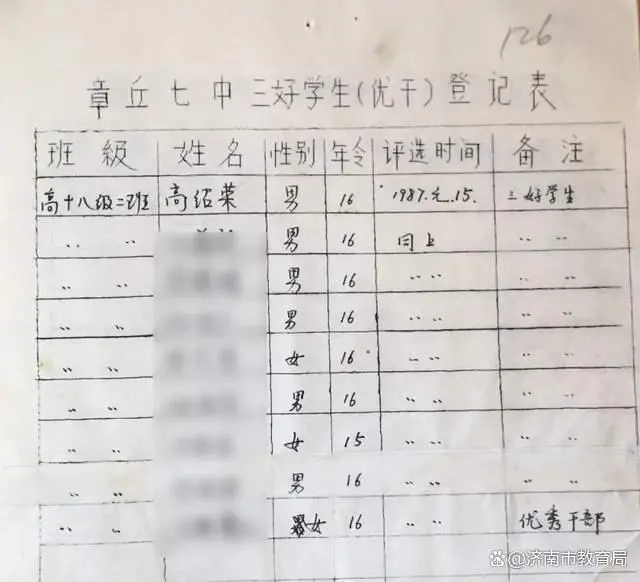 126
章丘七中三好学生(优干)登记表
班级 姓名 性别 年令 评选时间 备注
高十八级二班 高绍荣 男 16 1987.元.15. 三好学生
〃 〃 男 16 同上 〃 〃
〃 〃 男 16 〃 〃 〃 〃
〃 〃 男 16 〃 〃 〃 〃
〃 〃 女 16 〃 〃 〃 〃
〃 〃 男 16 〃 〃 〃 〃
〃 〃 女 15 〃 〃 〃 〃
〃 〃 男 16 〃 〃 〃 〃
〃 〃 女 16 〃 〃 优秀干部
@济南市教育局